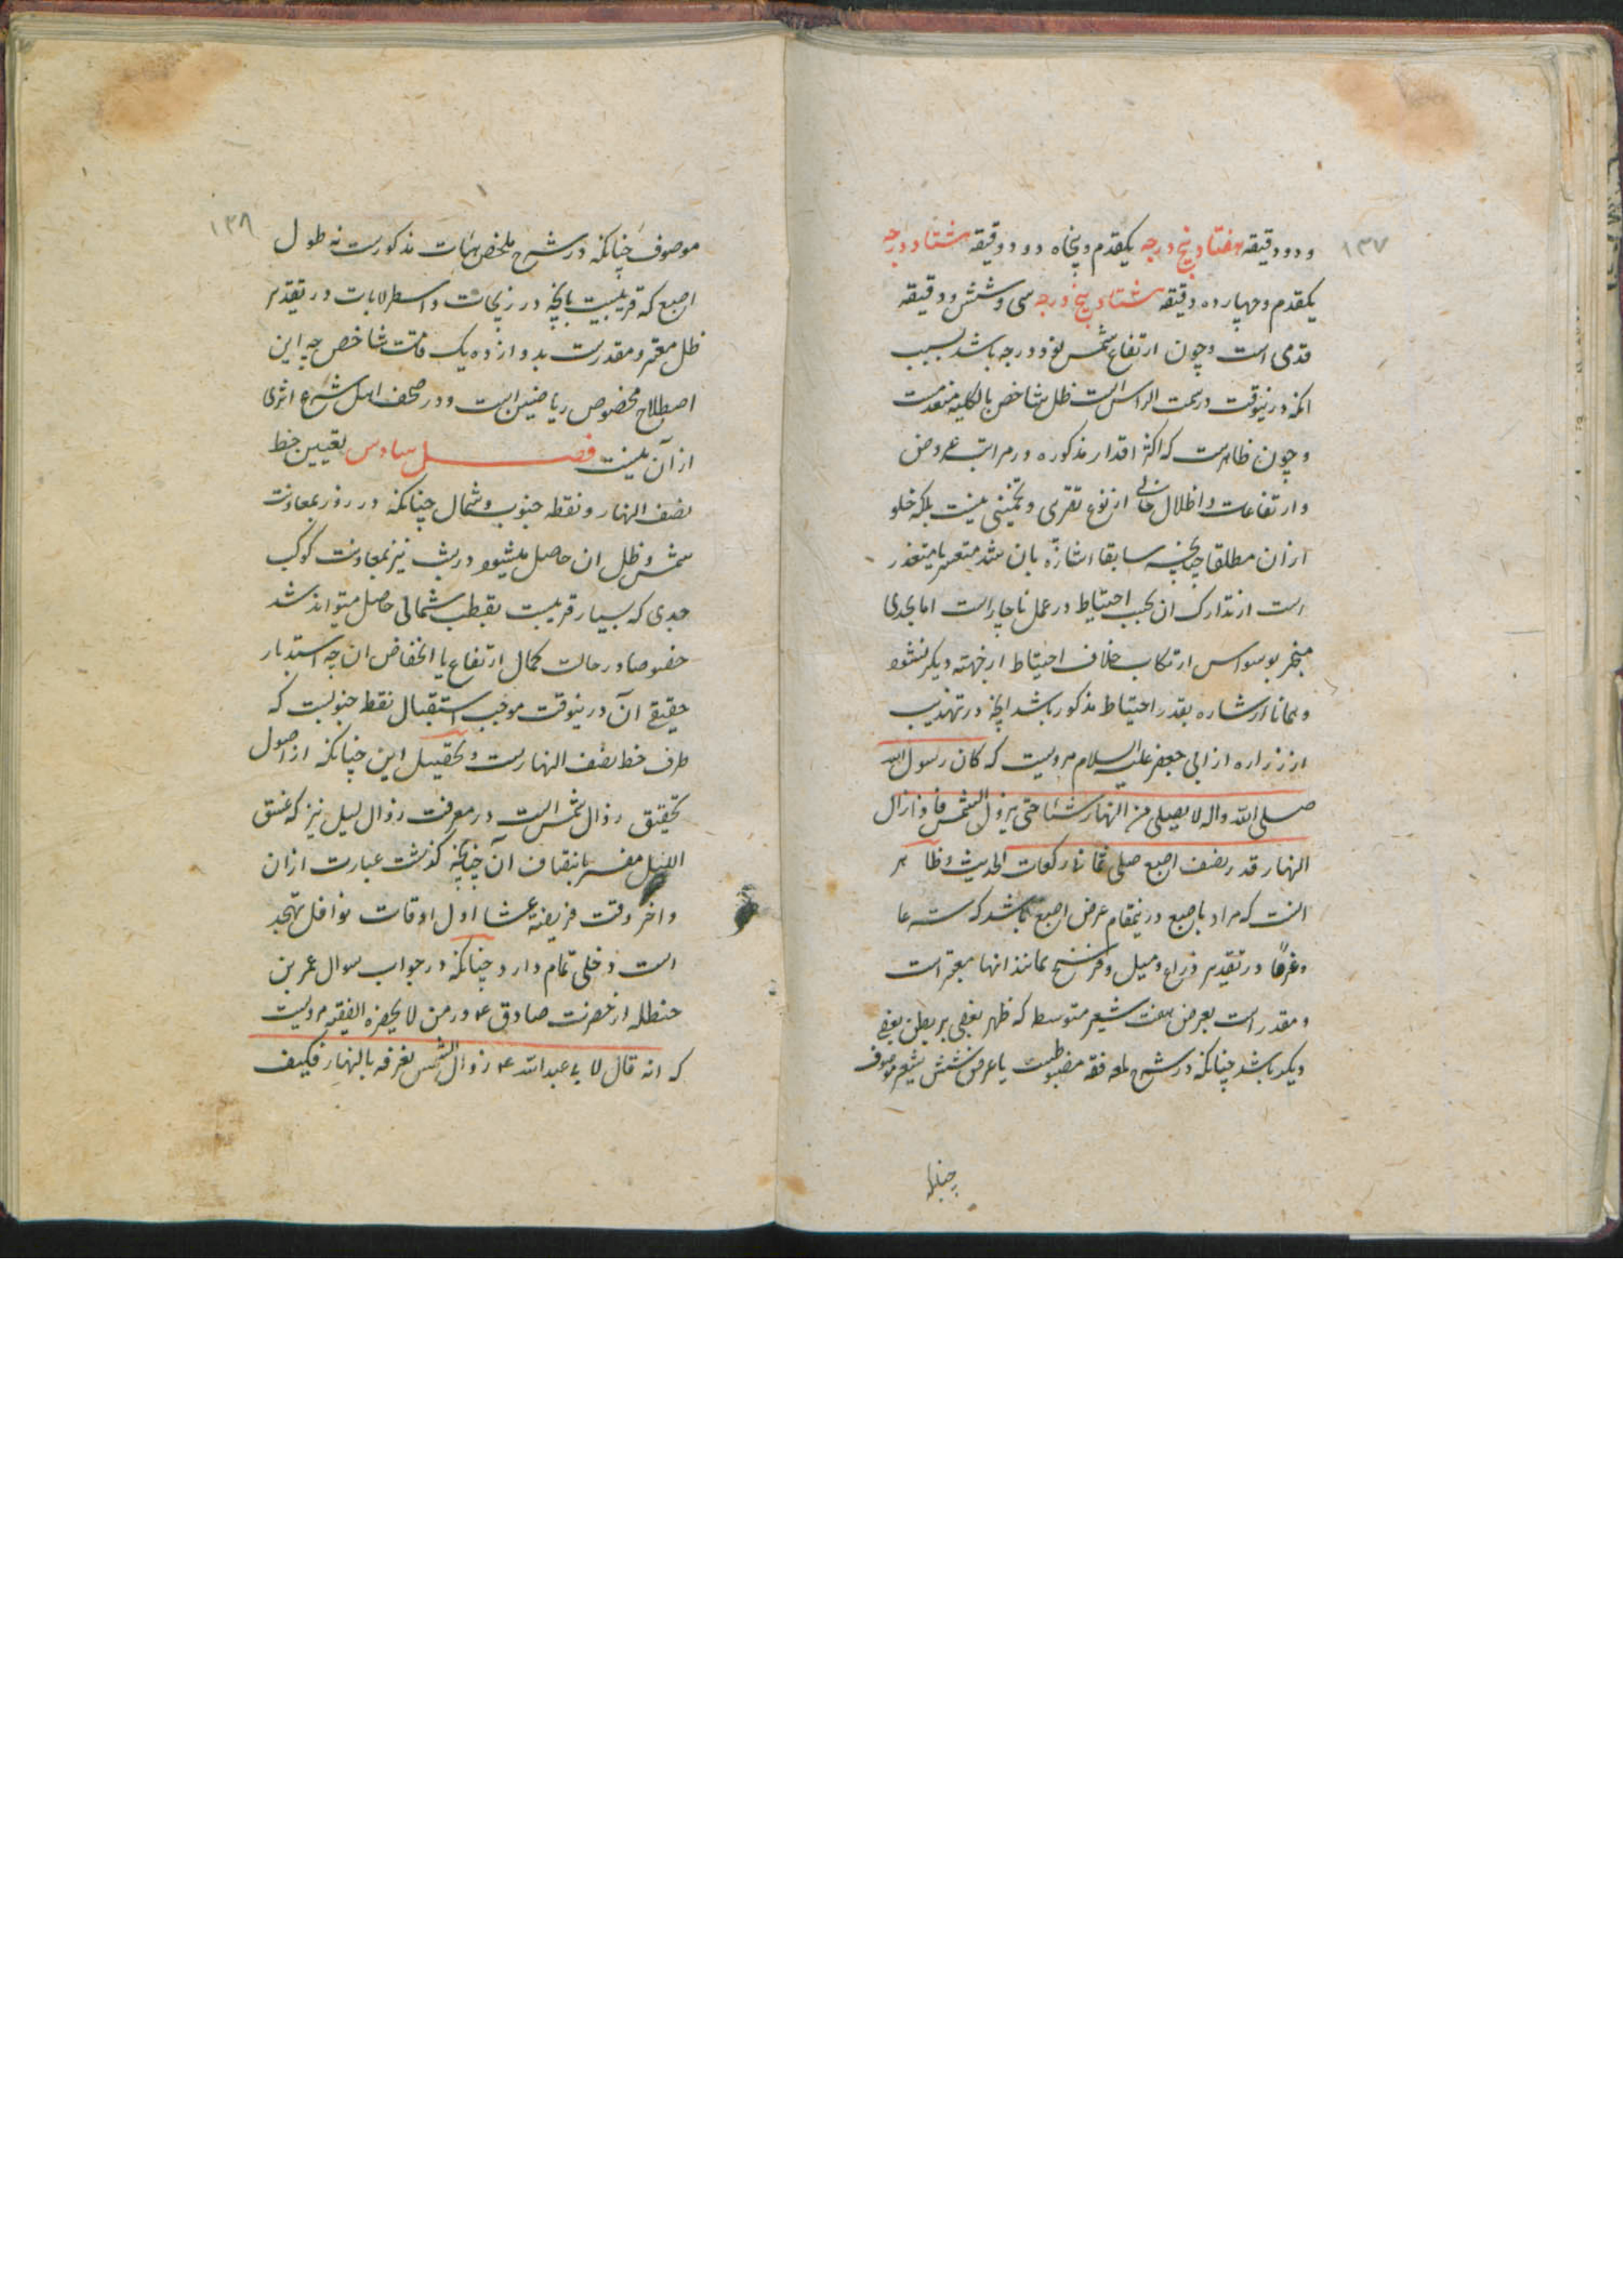 ۱۳۷
و دو دقیقه هفتاد و پنج درجه یکقدم و پنجاه و دو دقیقه هشتاد درجه
یکقدم و چهارده دقیقه هشتاد و پنج درجه سی و شش دقیقه
قدمی است و چون ارتفاع شمس نود درجه باشد بسبب
انکه درینوقت در سمت الراس است ظل شاخص بالکلیه منعدمست
و چون ظاهرست که اکثر اقدار مذکوره در مراتب عروض
و ارتفاعات و اظلال خالی از نوع تقریبی و تخمینی نیست بلکه خلو
از آن مطلقا چنانچه سابقا اشارة بان شد متعسر یا متعذر
است از تدارک ان بحسب احتیاط در عمل ناچار است اما بحدی
منجر بوسواس ارتکاب خلاف احتیاط از جهته دیگر نشود
و همانا اشاره بقدر احتیاط مذکور باشد انچه در تهذیب
از زراره از ابی جعفر علیه السلام مرویست که کان رسول الله
صلی الله و اله لا یصلی من النهار شیئا حتی یزول الشمس فاذا زال
النهار قدر نصف اصبع صلی ثمانی رکعات الحدیث و ظاهر
انست که مراد باصبع درینمقام عرض اصبع باشد که شرعا
و عرفا در تقدیر ذراع و میل و فرسخ و مانند انها معتبر است
و مقدر است بعرض هفت شعیر متوسط که ظهر بعضی بر بطن بعضی
دیگر باشد چنانکه در شرح لمعه فقه مضبوطست یا عرض شش شعیر موصوف
چنانکه
۱۳۸
موصوف چنانکه در شرح ملخص هیات مذکورست نه طول
اصبع که قریبست بانچه در زیجات و اسطرلابات در تقدیر
ظل معتبر و مقدرست بدوازده یک قامت شاخص چه این
اصطلاح مخصوص ریاضیین است و در صحف اهل شرع اثری
از آن نیست فصل سادس تعیین خط
نصف النهار و نقطه جنوب و شمال چنانکه در روز بمعاونت
شمس و ظل ان حاصل میشود در شب نیز بمعاونت کوکب
جدی که بسیار قریبست بقطب شمالی حاصل میتواند شد
خصوصا در حالت کمال ارتفاع یا انخفاض ان چه استدبار
حقیقی آن درینوقت موجب استقبال نقطه جنوبست که
طرف خط نصف النهارست و تحصیل این چنانکه از اصول
تحقیق زوال شمس است در معرفت زوال لیل نیز که غسق
اللیل مفسر بانتصاف آن چنانچه گذشت عبارت ازان
و اخر وقت فریضه عشا و اول اوقات نوافل تهجد
است دخلی تمام دارد چنانکه در جواب سوال عمر بن
حنظله از حضرت صادق ع در من لا یحضره الفقیه مرویست
که انه قال لابی عبدالله ع زوال الشمس نعرفه بالنهار فکیف